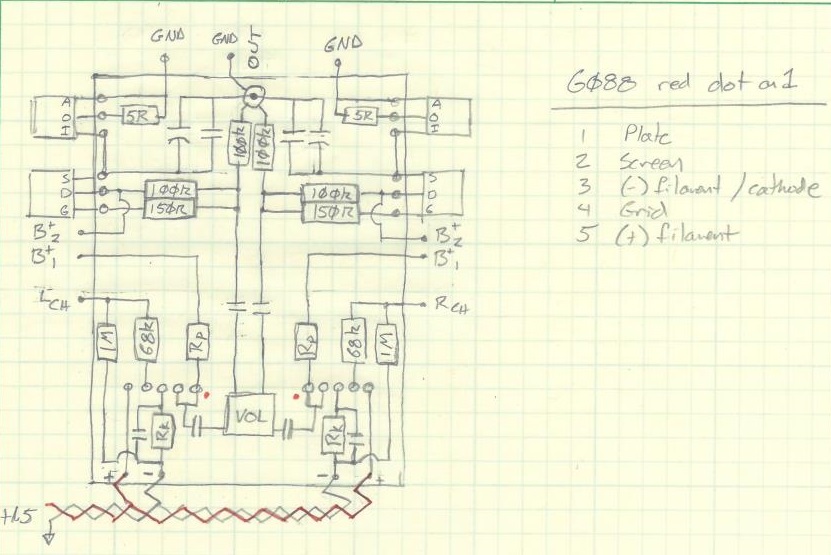 GND
GND
OUT
GND
A
O
I
5R
5R
A
O
I
100k
100k
S
D
G
100R
150R
100R
150R
S
D
G
B+2
B+1
B+2
B+1
LCH
RCH
1M
68k
Rp
Rp
68k
1M
VOL
Rk
Rk
+
-
-
+
+1.5
6088 red dot on 1
1 Plate
2 Screen
3 (-) filament / cathode
4 Grid
5 (+) filament